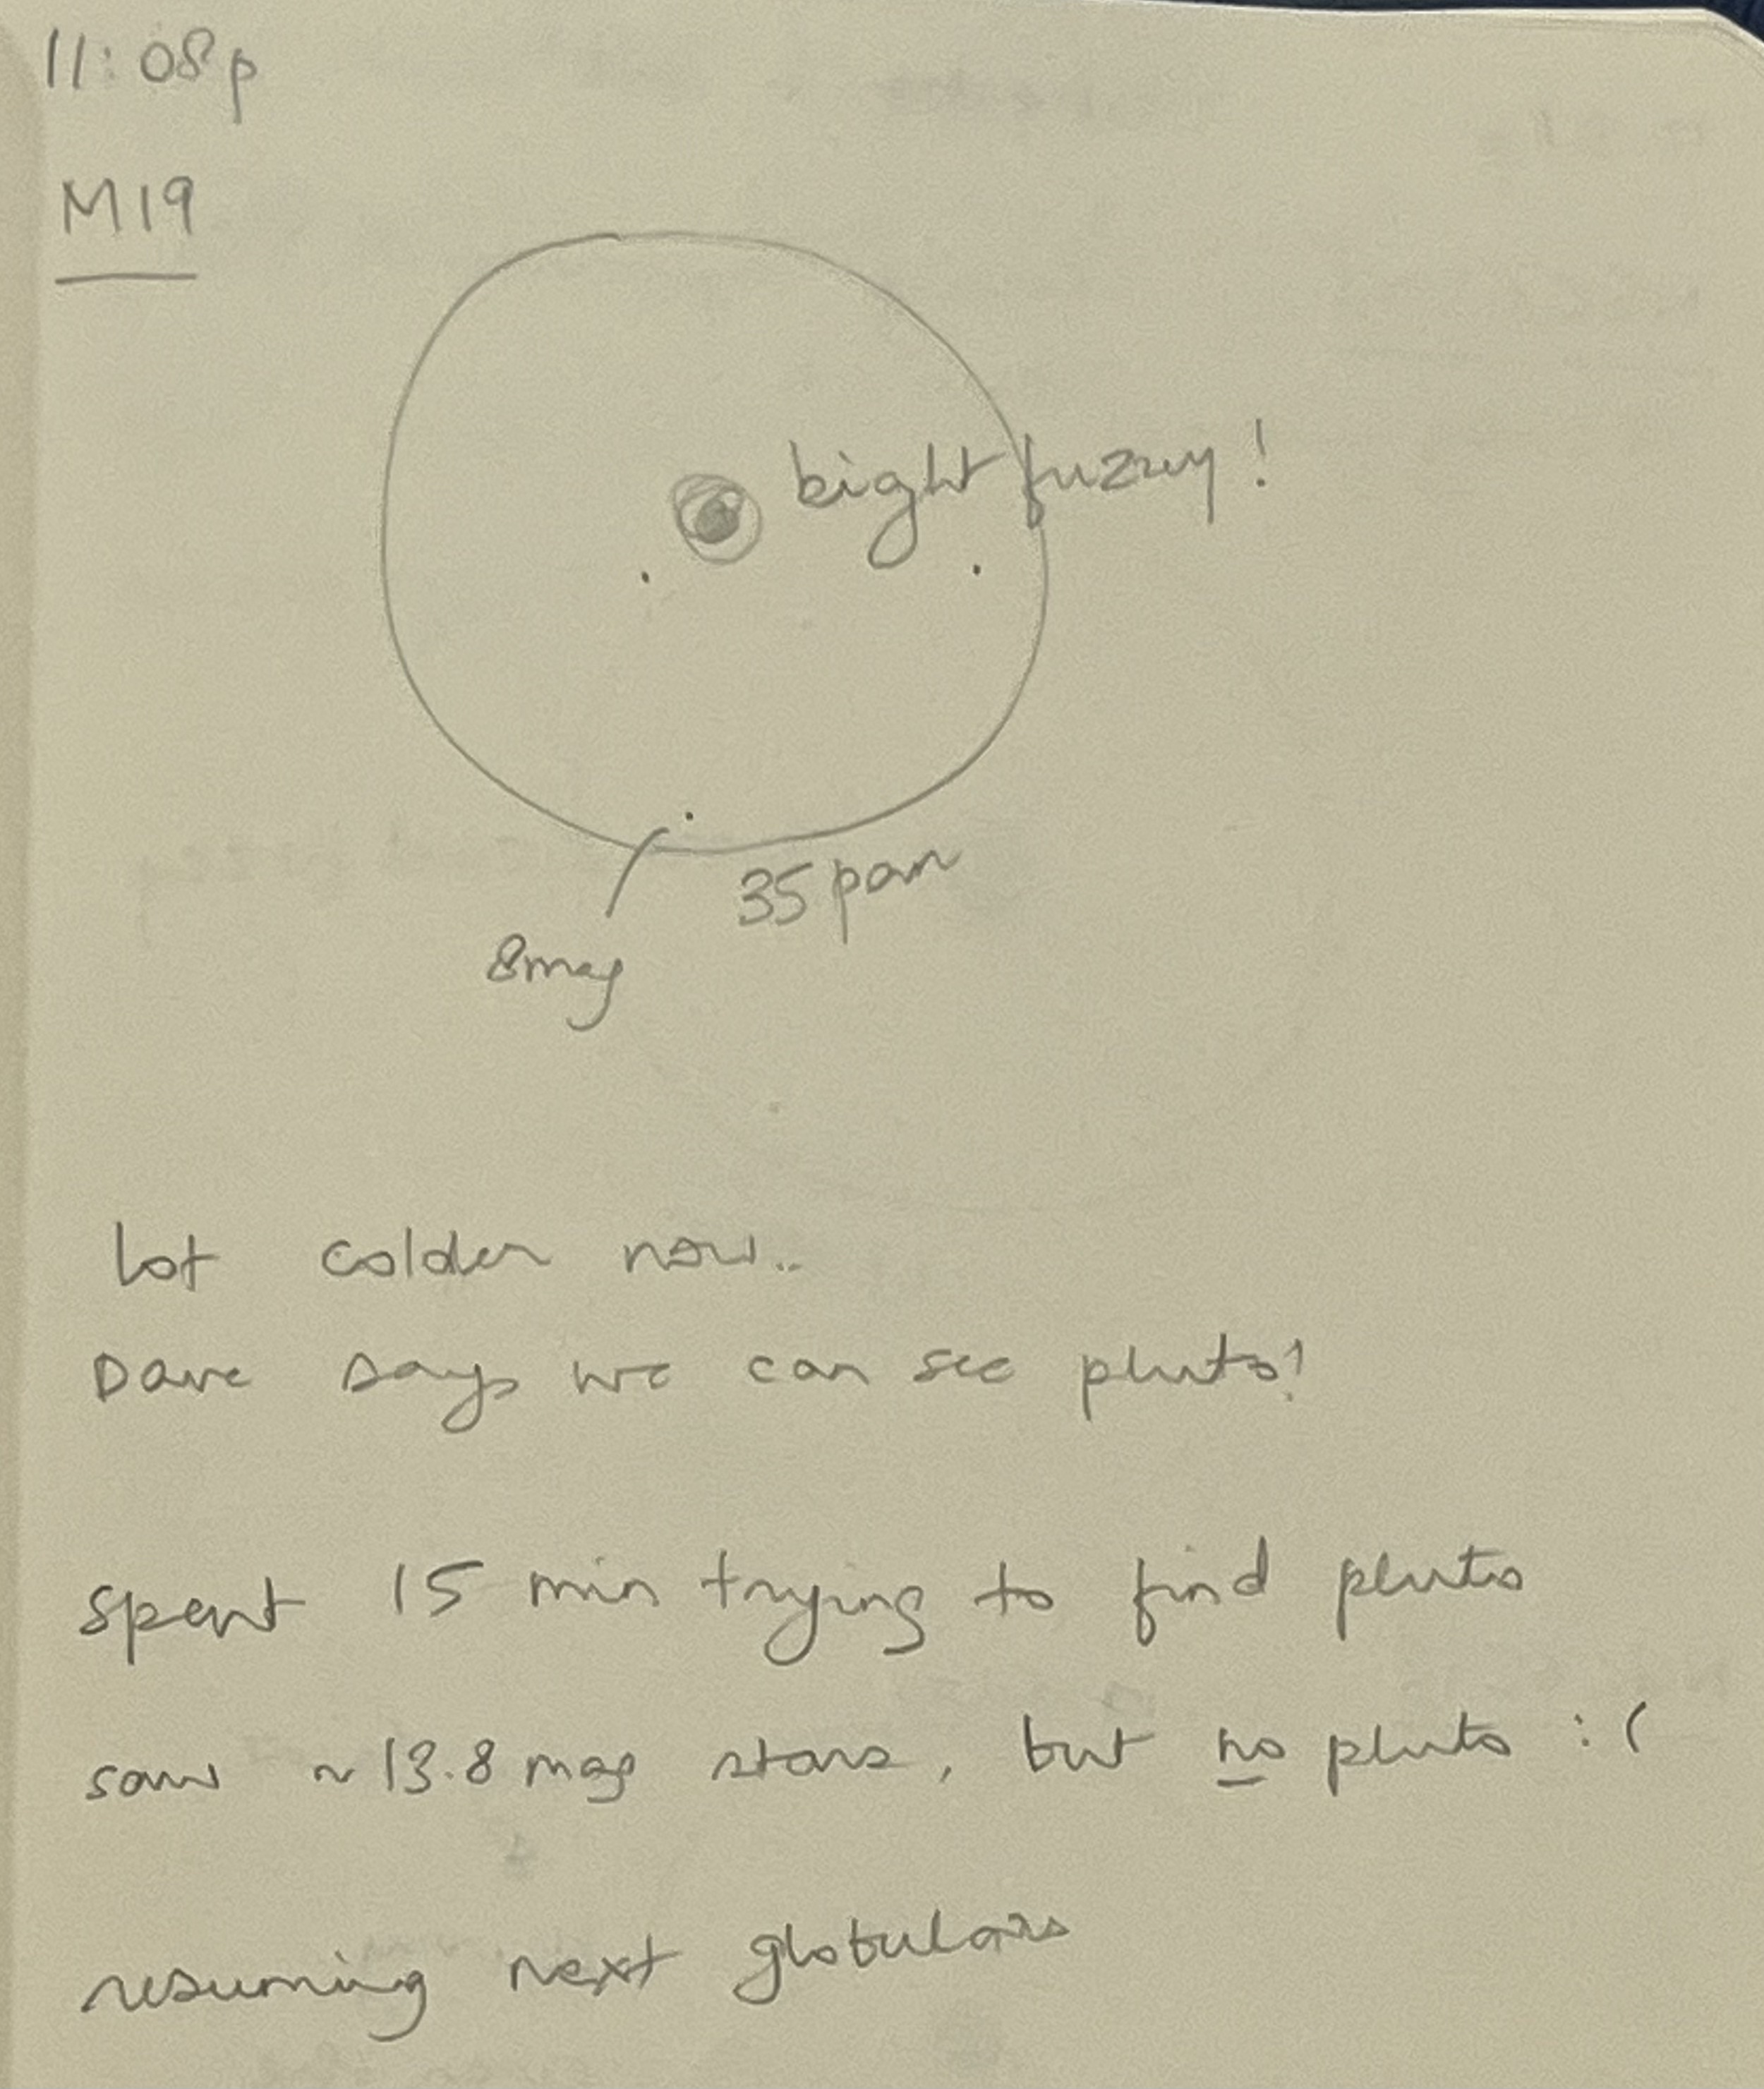 11:08p
M19
bright fuzzy!
35 pan
8mag
lot colder now..
Dave says we can see pluto!
spent 15 min trying to find pluto
saw ~13.8 mag stars, but no pluto :(
resuming next globulars